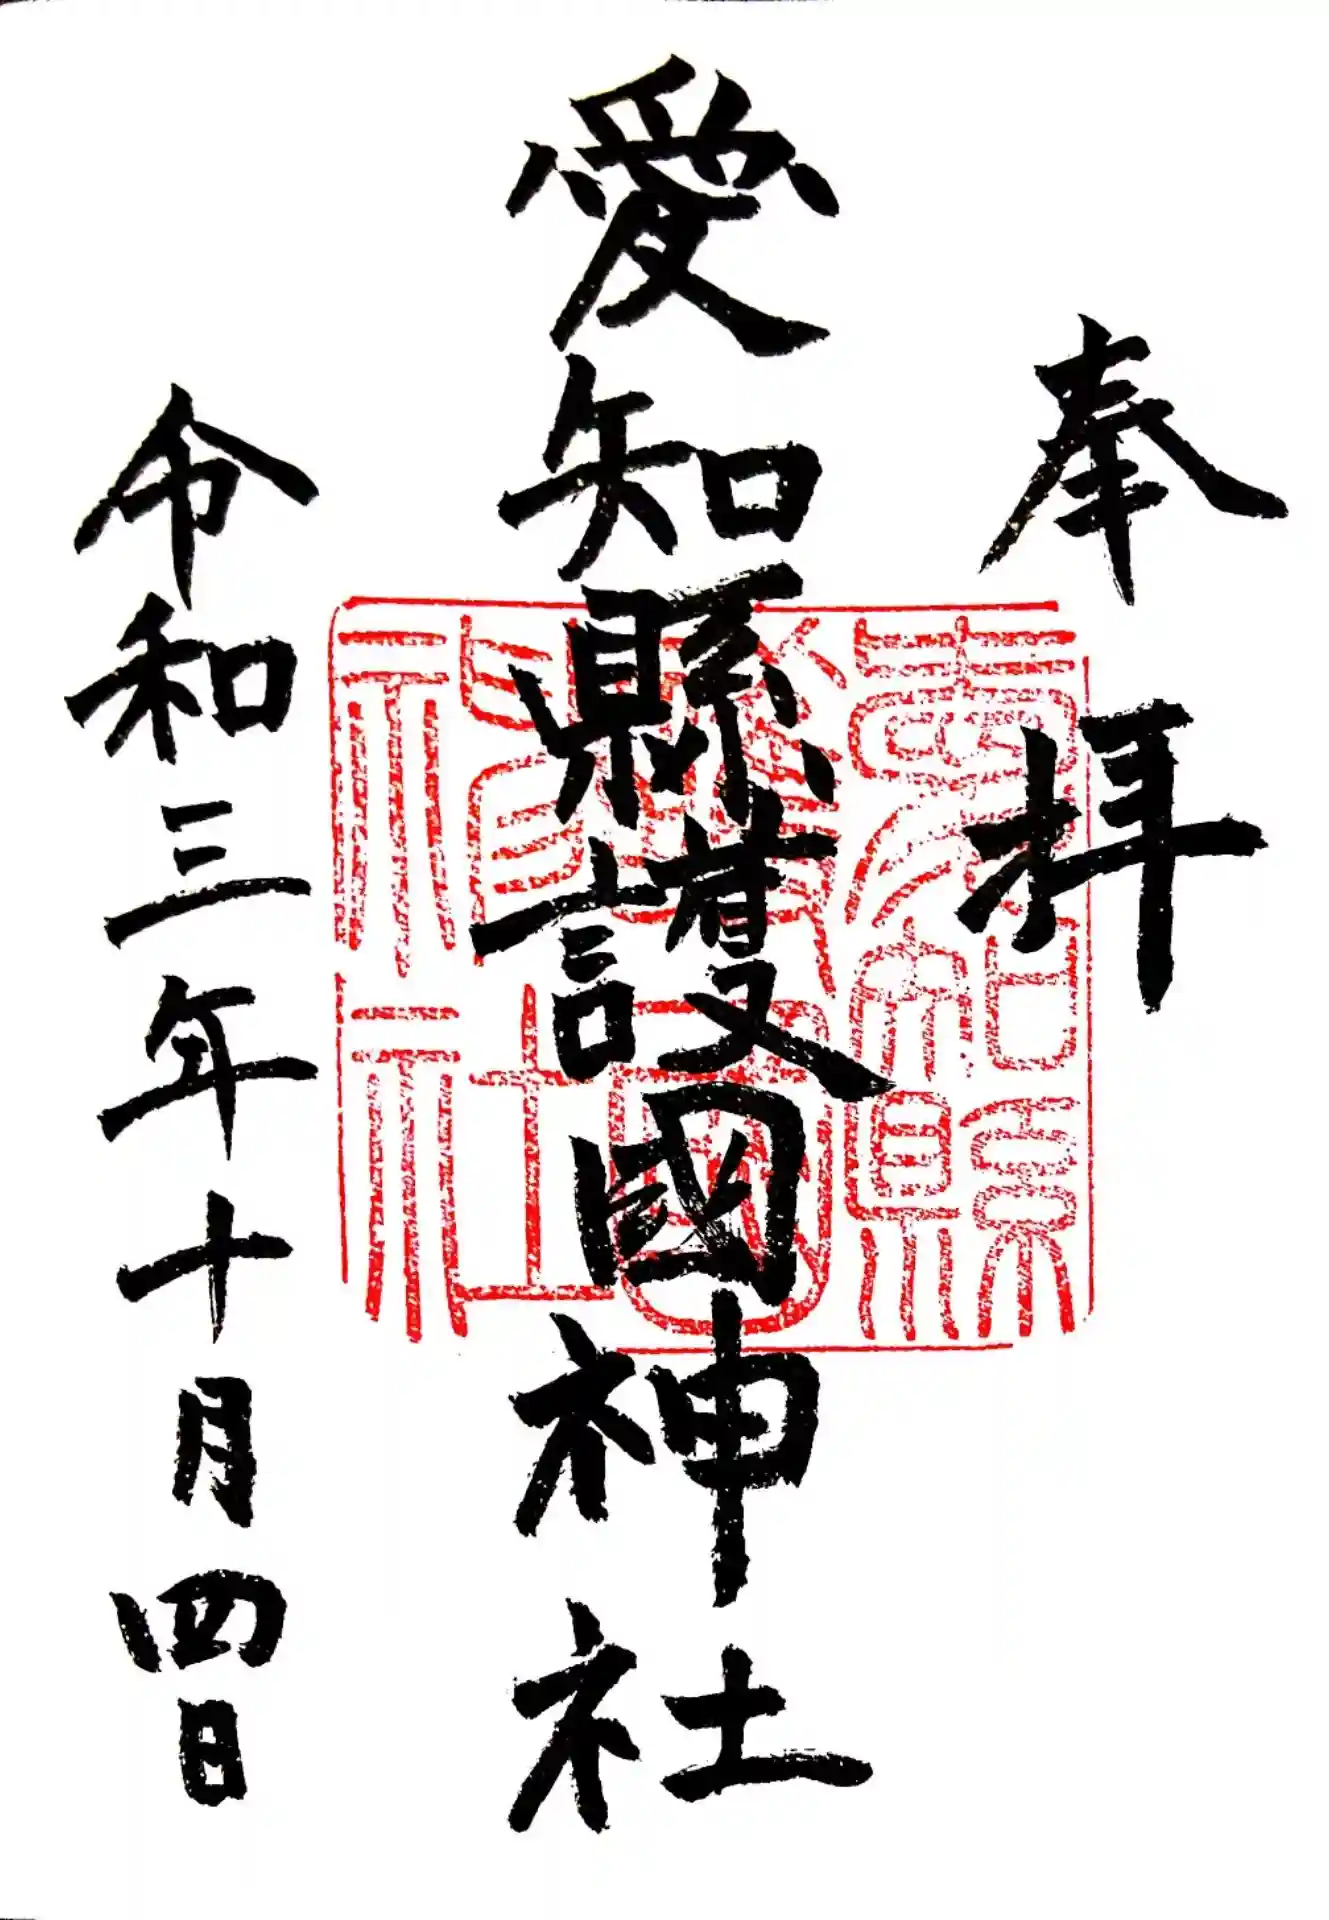 奉拝
愛知縣護國神社
愛知縣護國神社
令和三年十月四日